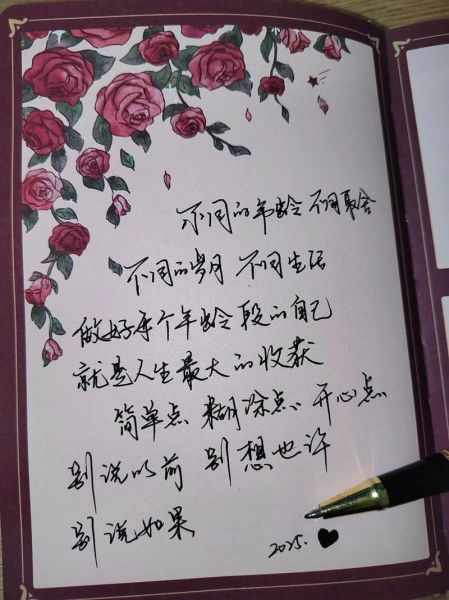 不同的年龄 不同取舍
不同的岁月 不同生活
做好每个年龄段的自己
就是人生最大的收获
简单点 糊涂点 开心点
别说以前 别想也许
别说如果
2025.